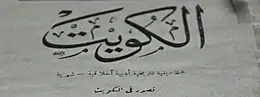 الكويت
مجلة دينية تاريخية أدبية أخلاقية - شهرية
تصدر في الكويت